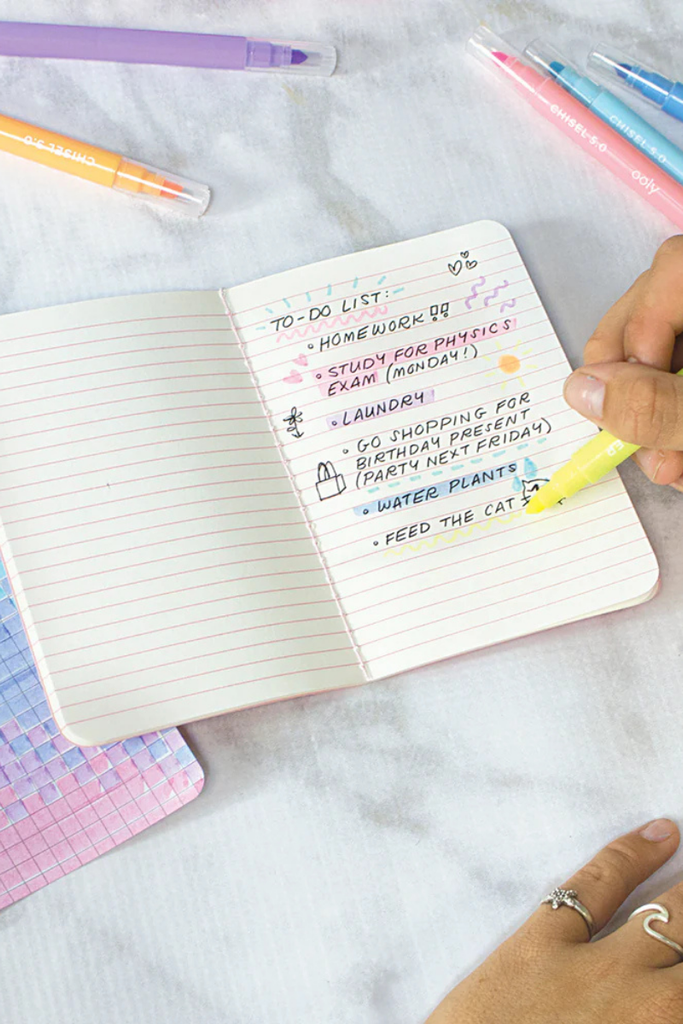 CHISEL 5.0
CHISEL 5.0
ooly
CHISEL 5.0
TO-DO LIST:
• HOMEWORK!!
• STUDY FOR PHYSICS
EXAM (MONDAY!)
• LAUNDRY
• GO SHOPPING FOR
BIRTHDAY PRESENT
(PARTY NEXT FRIDAY)
• WATER PLANTS
• FEED THE CAT